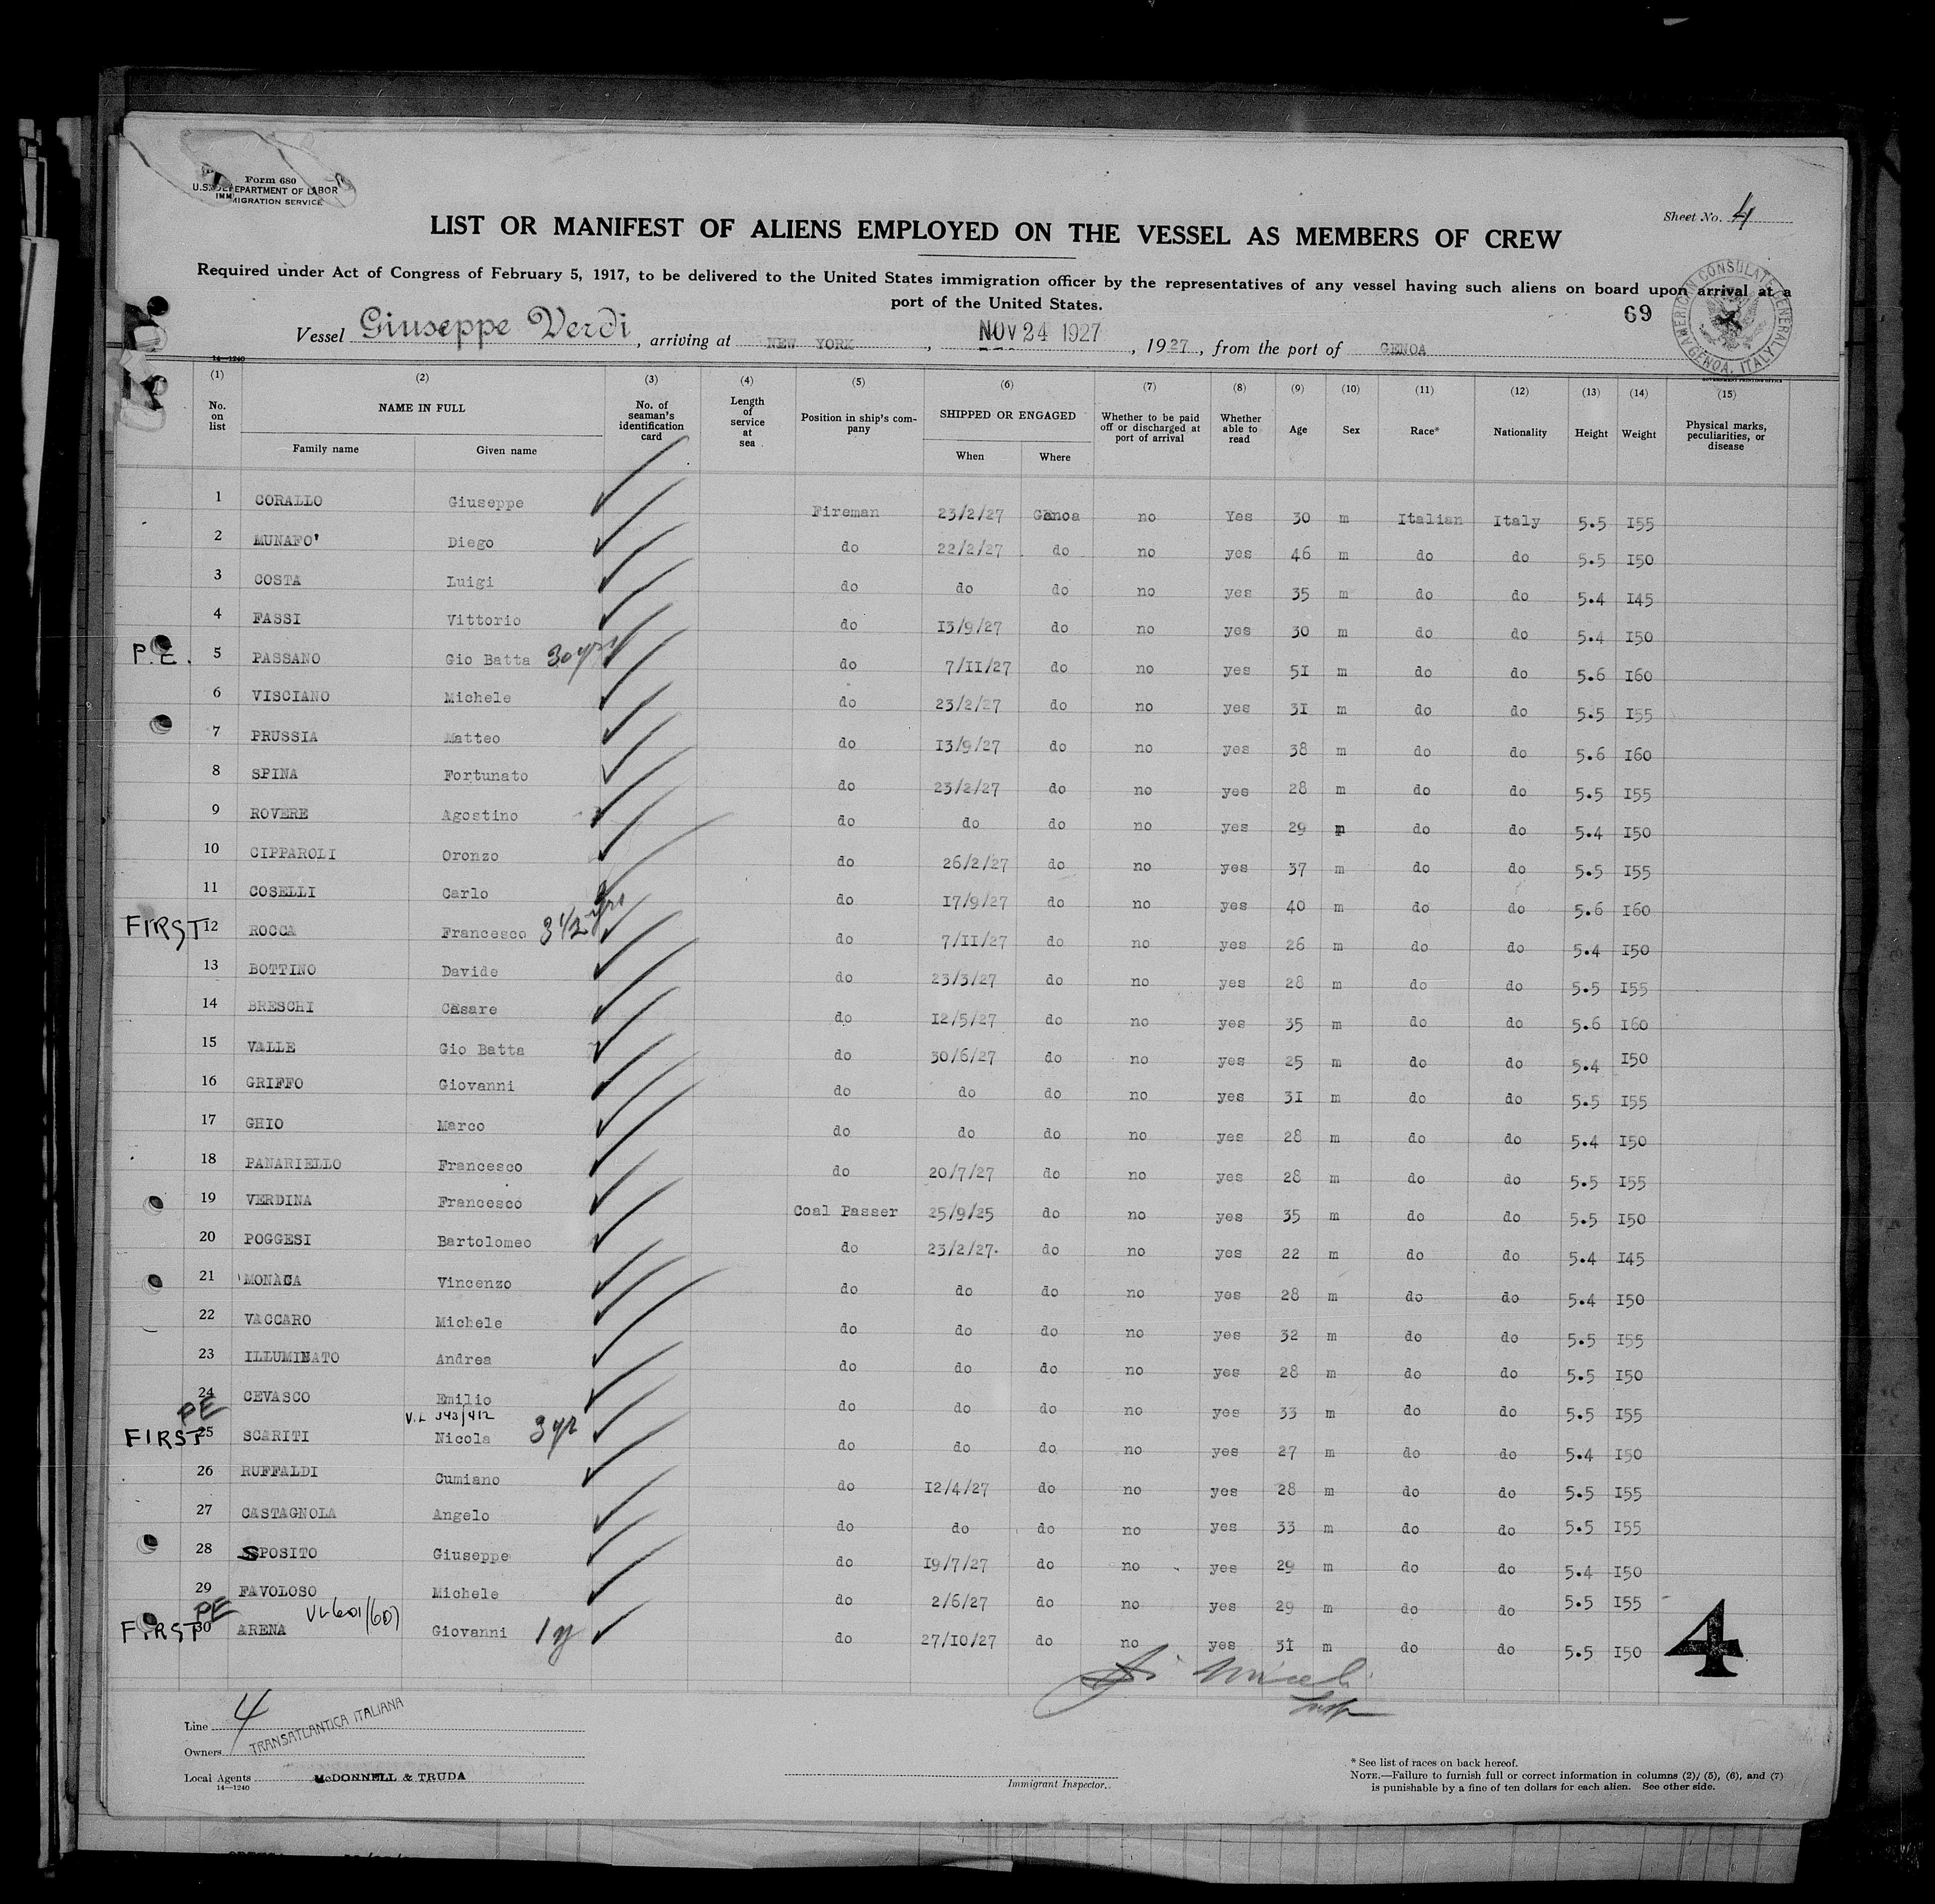 Form 680
U.S. DEPARTMENT OF LABOR
IMMIGRATION SERVICE
Sheet No. 4
LIST OR MANIFEST OF ALIENS EMPLOYED ON THE VESSEL AS MEMBERS OF CREW
Required under Act of Congress of February 5, 1917, to be delivered to the United States immigration officer by the representatives of any vessel having such aliens on board upon arrival at a
port of the United States.
69
AMERICAN CONSULATE GENERAL GENOA, ITALY
Vessel Giuseppe Verdi, arriving at NEW YORK, NOV 24 1927, 1927, from the port of GENOA
14—1240 GOVERNMENT PRINTING OFFICE
(1) (2) (3) (4) (5) (6) (7) (8) (9) (10) (11) (12) (13) (14) (15)
No. on list NAME IN FULL Family name Given name No. of seaman's identification card Length of service at sea Position in ship's company SHIPPED OR ENGAGED When Where Whether to be paid off or discharged at port of arrival Whether able to read Age Sex Race* Nationality Height Weight Physical marks, peculiarities, or disease
1 CORALLO Giuseppe Fireman 23/2/27 Genoa no Yes 30 m Italian Italy 5.5 I55
2 MUNAFO' Diego do 22/2/27 do no yes 46 m do do 5.5 I50
3 COSTA Luigi do do do no yes 35 m do do 5.4 I45
4 FASSI Vittorio do I3/9/27 do no yes 30 m do do 5.4 I50
P.E. 5 PASSANO Gio Batta 30 yrs do 7/II/27 do no yes 5I m do do 5.6 I60
6 VISCIANO Michele do 23/2/27 do no yes 3I m do do 5.5 I55
7 PRUSSIA Matteo do I3/9/27 do no yes 38 m do do 5.6 I60
8 SPINA Fortunato do 23/2/27 do no yes 28 m do do 5.5 I55
9 ROVERE Agostino do do do no yes 29 m do do 5.4 I50
10 CIPPAROLI Oronzo do 26/2/27 do no yes 37 m do do 5.5 I55
11 COSELLI Carlo do I7/9/27 do no yes 40 m do do 5.6 I60
FIRST 12 ROCCA Francesco 3 1/2 yrs do 7/II/27 do no yes 26 m do do 5.4 I50
13 BOTTINO Davide do 23/3/27 do no yes 28 m do do 5.5 I55
14 BRESCHI Cesare do I2/5/27 do no yes 35 m do do 5.6 I60
15 VALLE Gio Batta do 30/6/27 do no yes 25 m do do 5.4 I50
16 GRIFFO Giovanni do do do no yes 3I m do do 5.5 I55
17 GHIO Marco do do do no yes 28 m do do 5.4 I50
18 PANARIELLO Francesco do 20/7/27 do no yes 28 m do do 5.5 I55
19 VERDINA Francesco Coal Passer 25/9/25 do no yes 35 m do do 5.5 I50
20 POGGESI Bartolomeo do 23/2/27. do no yes 22 m do do 5.4 I45
21 MONACA Vincenzo do do do no yes 28 m do do 5.4 I50
22 VACCARO Michele do do do no yes 32 m do do 5.5 I55
23 ILLUMINATO Andrea do do do no yes 28 m do do 5.5 I50
24 CEVASCO Emilio do do do no yes 33 m do do 5.5 I55
PE V.L 343/412
FIRST 25 SCARITI Nicola 3 yr do do do no yes 27 m do do 5.4 I50
26 RUFFALDI Cumiano do I2/4/27 do no yes 28 m do do 5.5 I55
27 CASTAGNOLA Angelo do do do no yes 33 m do do 5.5 I55
28 SPOSITO Giuseppe do I9/7/27 do no yes 29 m do do 5.4 I50
29 FAVOLOSO Michele do 2/6/27 do no yes 29 m do do 5.5 I55
PE VL601/607
FIRST 30 ARENA Giovanni 1 y do 27/IO/27 do no yes 3I m do do 5.5 I50
4
Line 4
Owners TRANSATLANTICA ITALIANA
Local Agents McDONNELL & TRUDA
14—1240
Immigrant Inspector.
* See list of races on back hereof.
NOTE.—Failure to furnish full or correct information in columns (2), (5), (6), and (7)
is punishable by a fine of ten dollars for each alien. See other side.